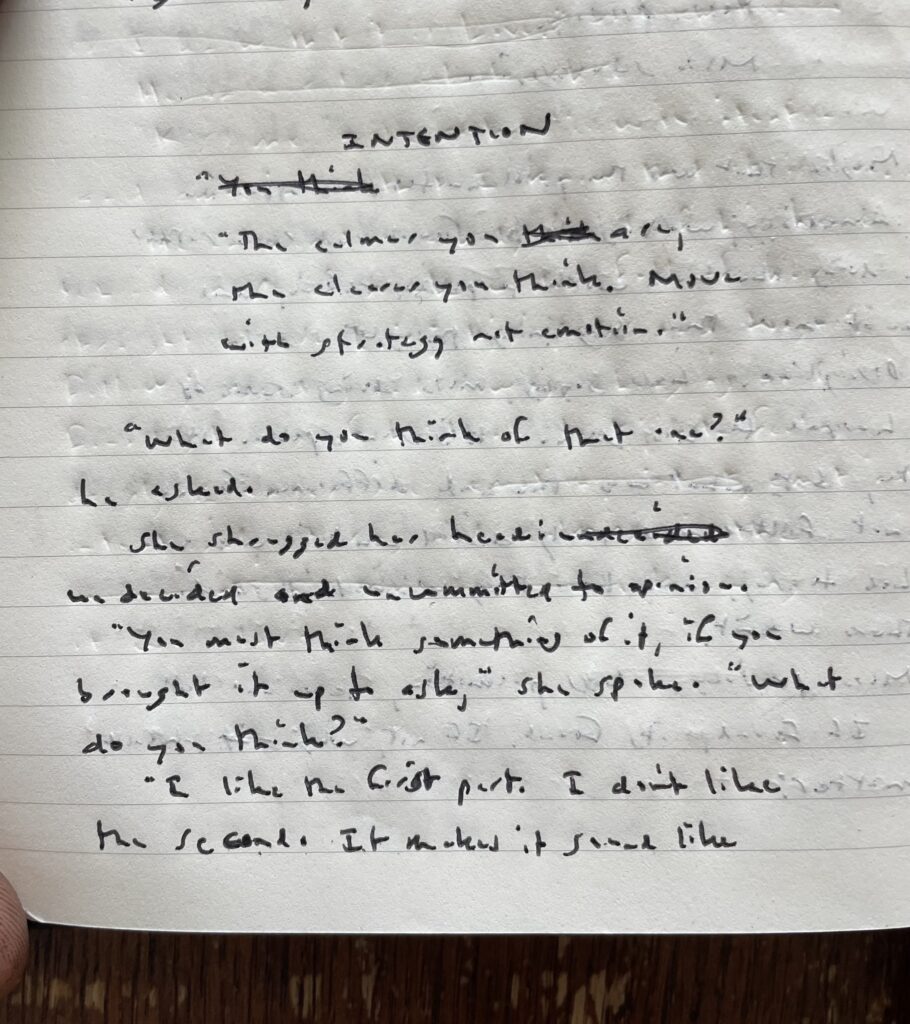 INTENTION
"You think
"The calmer you think are,
the clearer you think. Move
with strategy not emotion."
"What do you think of that one?"
he asked.
She shrugged her head:
undecided and uncommitted to opinion.
"You must think something of it, if you
brought it up to ask," she spoke. "What
do you think?"
"I like the first part. I don't like
the second. It makes it sound like